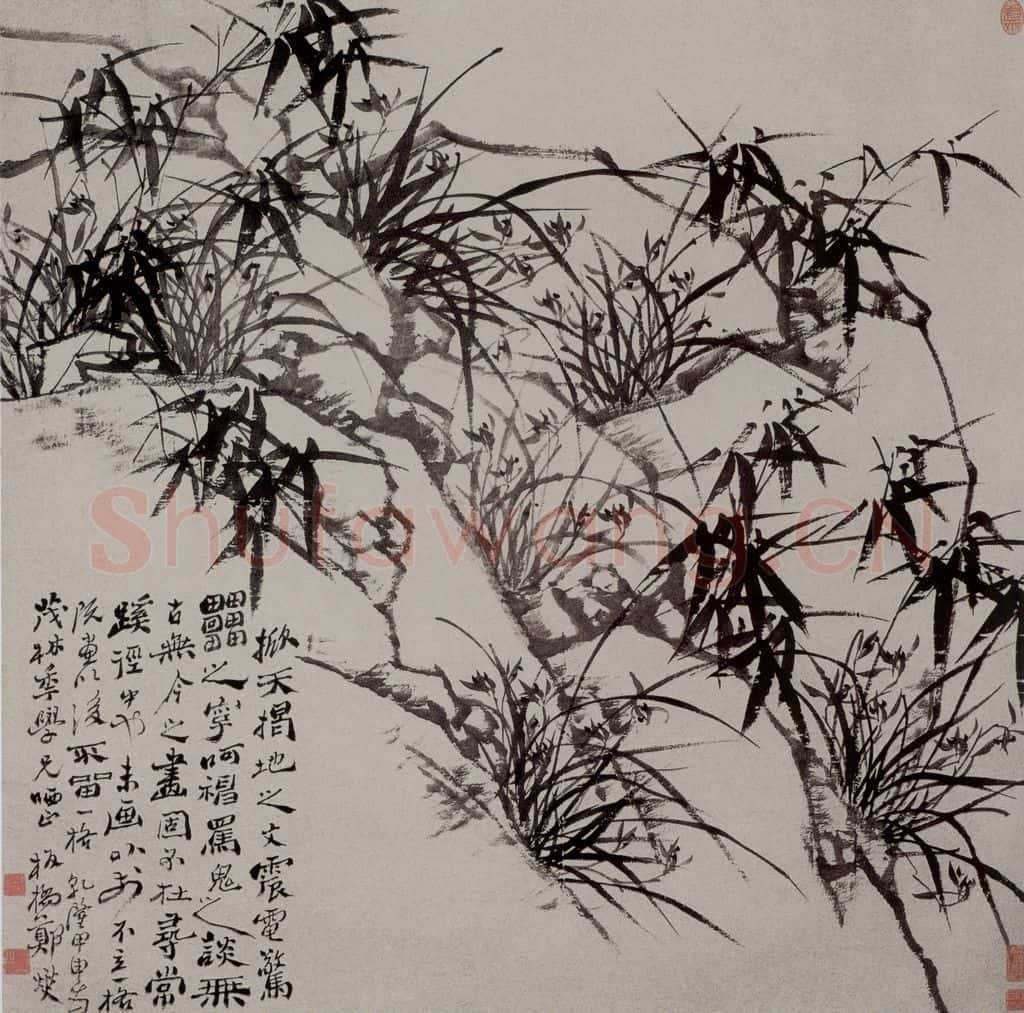 掀天揭地之文震電驚
𤴐之字呵神罵鬼之談無
古無今之畫固不在尋常
蹊徑中也未画以前不立一格
既畫以後不留一格 乾隆甲申
茂林季學兄哂正 板橋鄭燮
Shufawang.cn